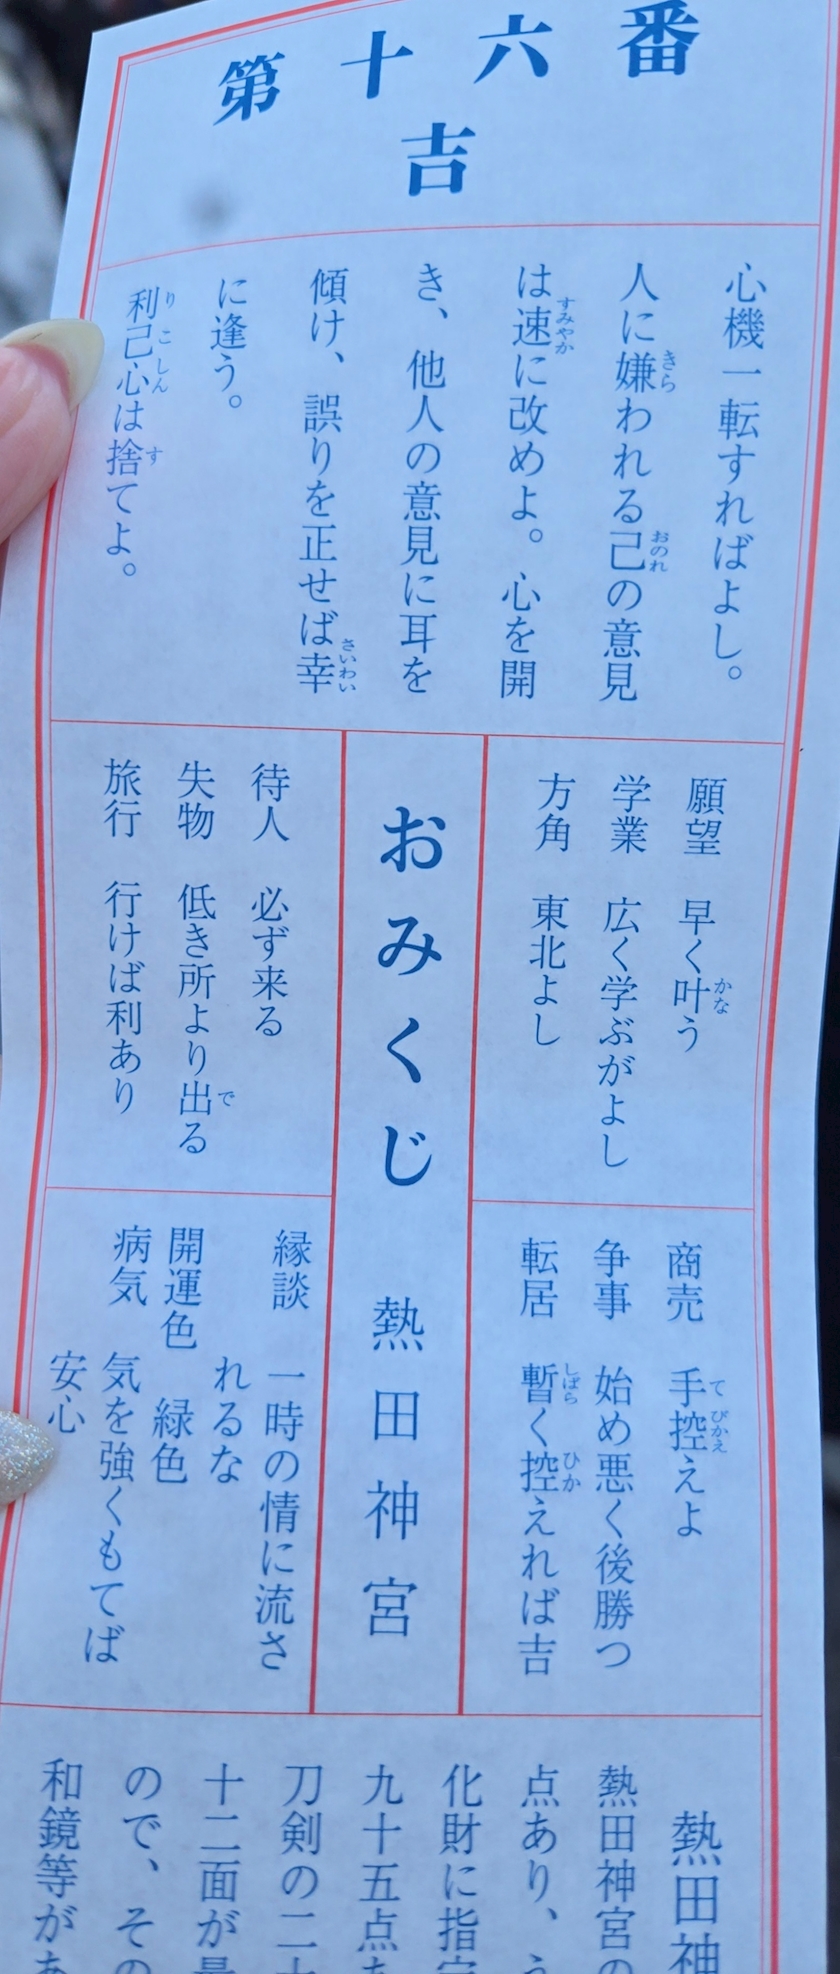 第十六番
吉
心機一転すればよし。
人に嫌われる己の意見
は速に改めよ。心を開
き、他人の意見に耳を
傾け、誤りを正せば幸
に逢う。
利己心は捨てよ。
願望 早く叶う
学業 広く学ぶがよし
方角 東北よし
商売 手控えよ
争事 始め悪く後勝つ
転居 暫く控えれば吉
おみくじ 熱田神宮
待人 必ず来る
失物 低き所より出る
旅行 行けば利あり
縁談 一時の情に流さ
れるな
開運色 緑色
病気 気を強くもてば
安心
熱田神
熱田神宮の
点あり、う
化財に指定
九十五点を
刀剣の二十
十二面が最
ので、その
和鏡等があ